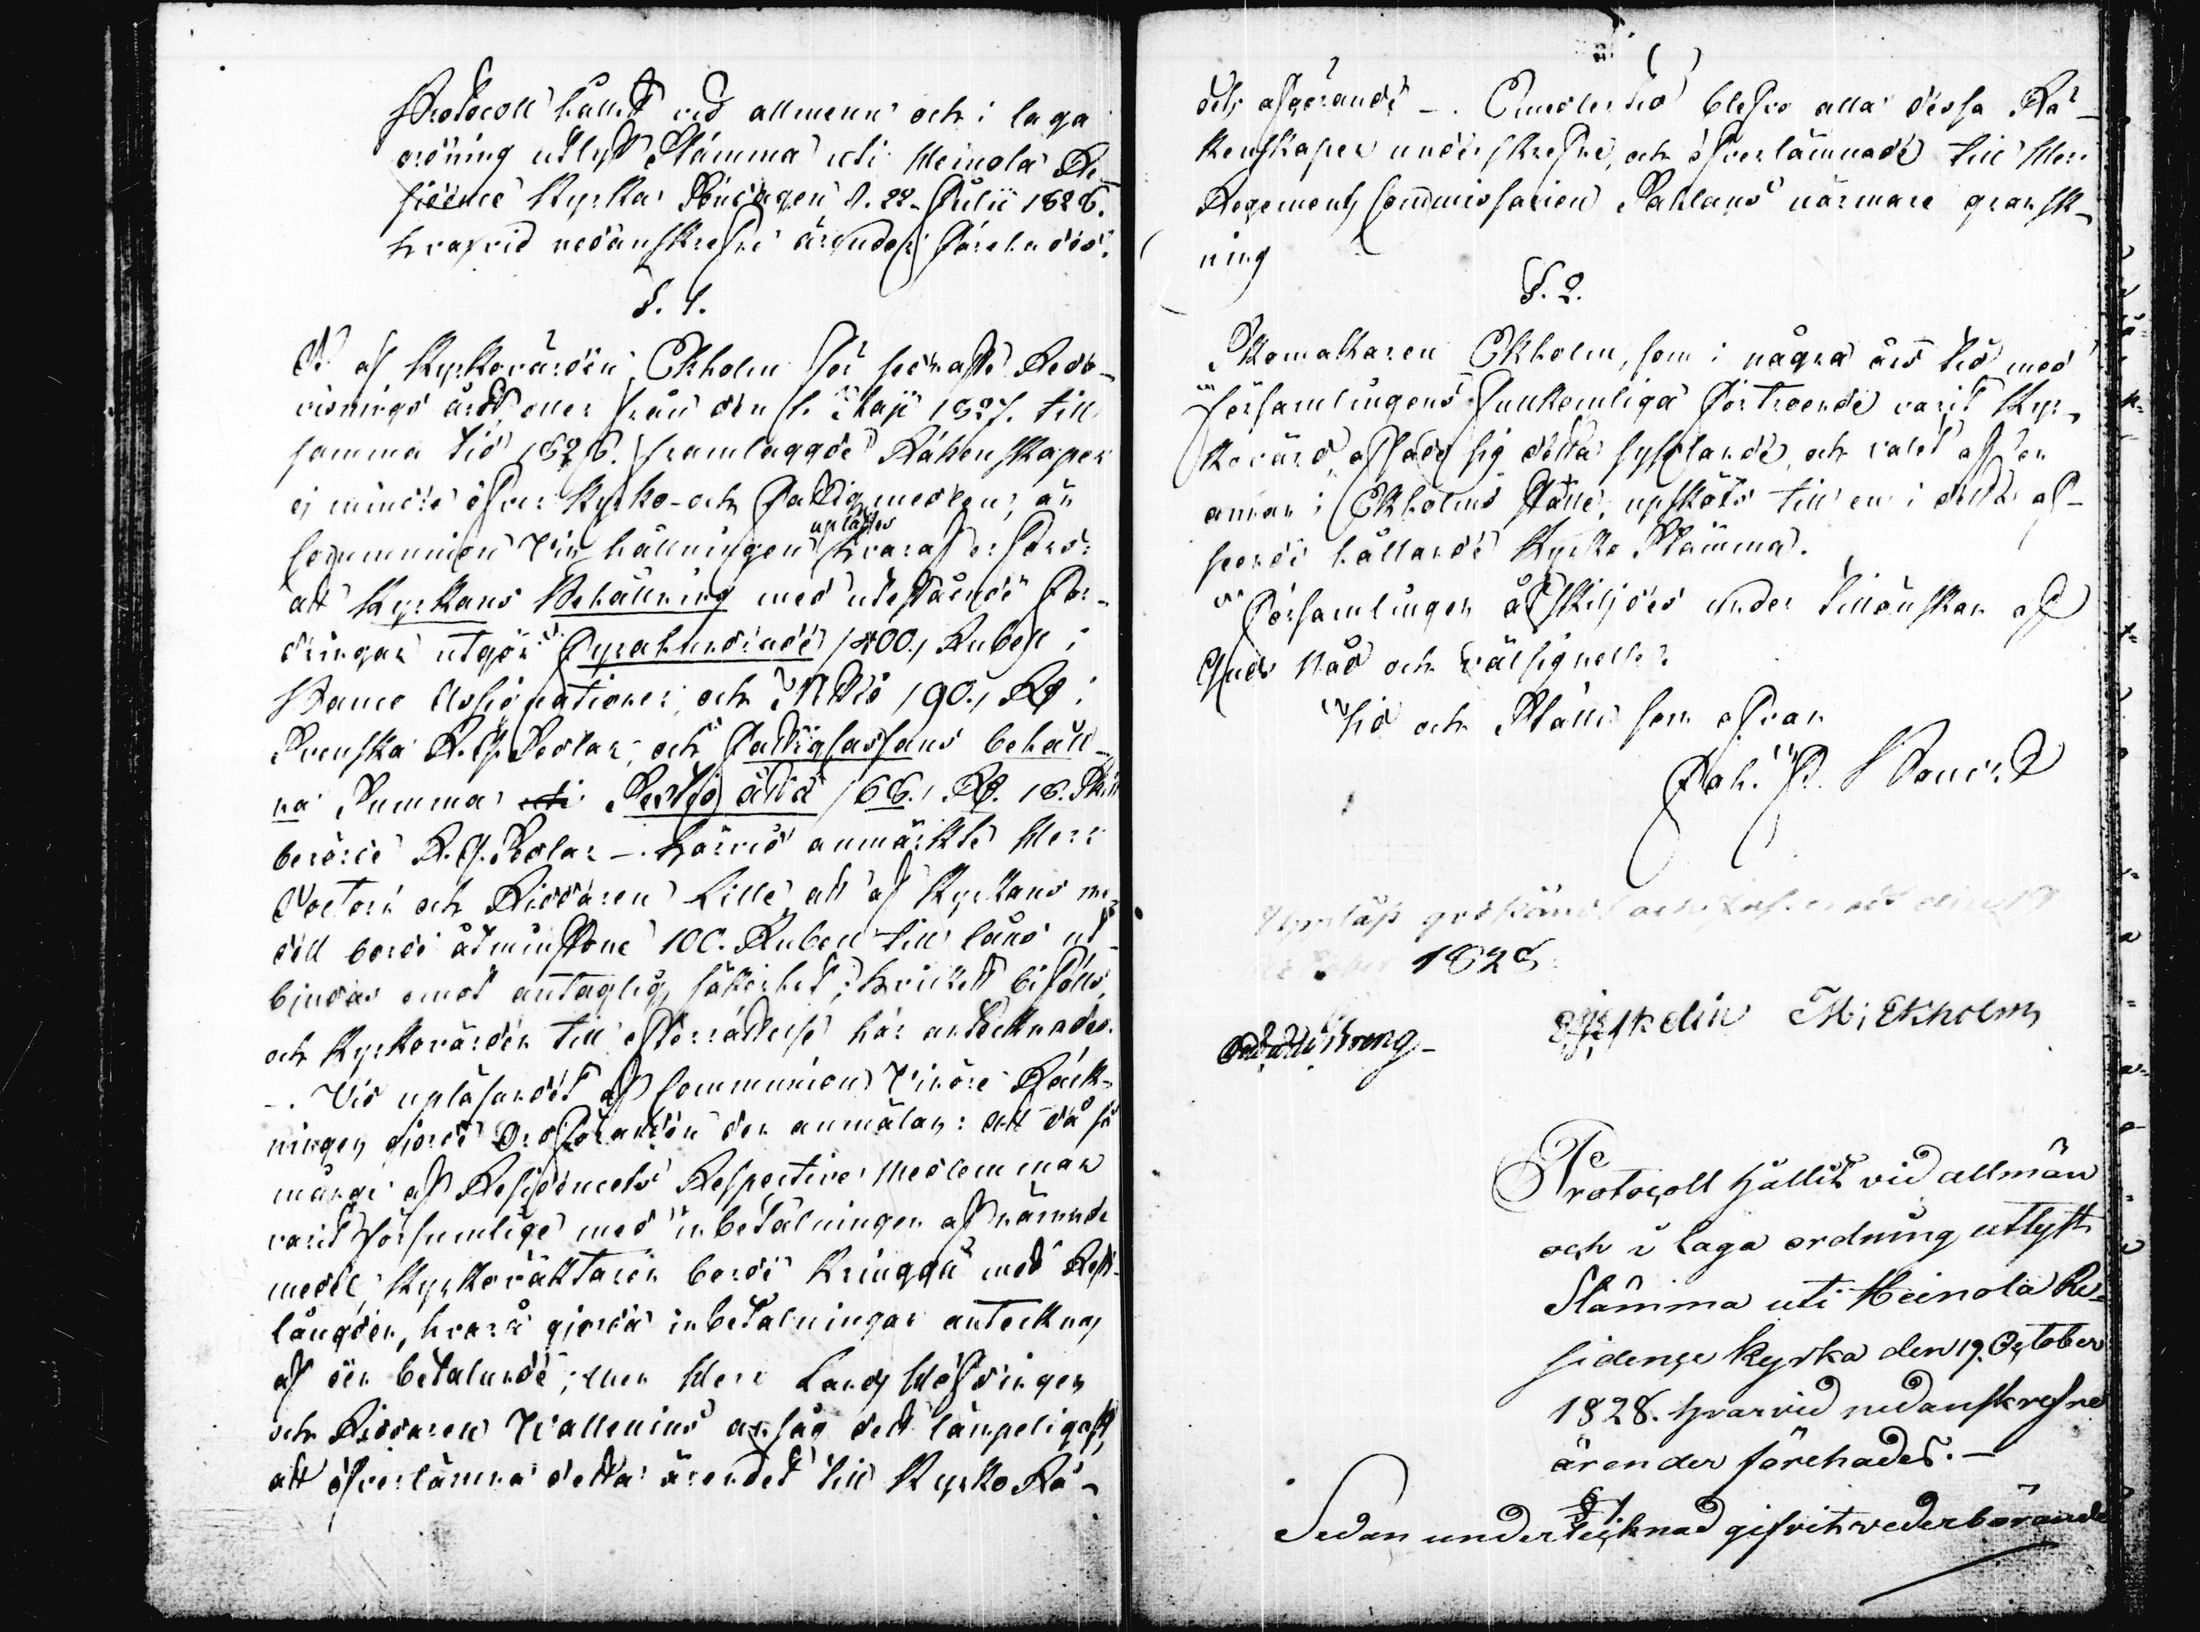 Protocoll hållet vid allmenn och i laga
ordning utlyst Stämma uti Heinola Re-
sidence Kyrka Söndagen d. 22. Julii 1828.
hvarvid nedanskrefne ärender förehades.
§. 1.
af Kyrkovärden Ekholm för sednaste Redo-
visnings året eller från den 1. Maji 1827. till
samma tid 1828. framlaggde Räkenskaper
ej mindre öfver Kyrko- och Fattig medlen, än
Communion Vin hållningen uplästes hvaraf erfors:
att Kyrkans Behållning med utestående For-
dringar utgör Fyrahundrade /400./ Rubel i
Banco Assignationer, och Nittio /90./ Rd i
Svenska R.G. Sedlar, och Fattigcassans behåll-
na Summa Sextio åtta /68./ Rd. 18. Skill
berörde R.G. Sedlar –. härvid anmärkte Herr
Doctorn och Riddaren Lille, att af Kyrkans me-
del borde åtminstone 100. Rubel till låns ut-
bjudas emot antaglig säkerhet; hvilket bifölls,
och Kyrkovärden till efterrättelse här antecknades.
–. Vid upläsandet af Communion Vinöre Räk-
ningen gjorde Ordföranden den anmälan: att då så
många af Residencets Respective medlemmar
varit försumlige med inbetalningen af nämnde
medel, Kyrkovaktaren borde kringgå med Rest-
längden, hvarå gjorda inbetalningar antecknas
af den betalande; men Herr Lands Höfdingen
och Riddaren Wallenius ansåg det lämpeligast,
att öfverlämna detta ärendet till Kyrko Rå-
dets afgörande –. Emedlertid blefvo alla dessa Rä-
kenskaper underskrefne, och öfverlämnade till Herr
Regements Commissarien Pahlans närmare gransk-
ning
§. 2.
Skomakaren Ekholm, som i några års tid med
församlingens fullkomliga förtroende varit Kyr-
kovärd, afsade sig detta sysslande, och valet af en
annan i Ekholms ställe, upsköts till en i detta af-
seende hållande Kyrko Stämma.
Församlingen åtskiljdes under tillönskan af
Guds Nåd och välsignelse.
Tid och Ställe som ofvan
Joh.
Upläst godkänd och
October 1828.
M; Ekholm
Protocoll hållit vid allmän
och i laga ordning utlyst
Stämma uti Heinola Re-
sidence kyrka den 19. October
1828. hvarvid nedanskrefne
ärender förehades. –
§ 1
Sedan undertecknad gifvit vederbörande